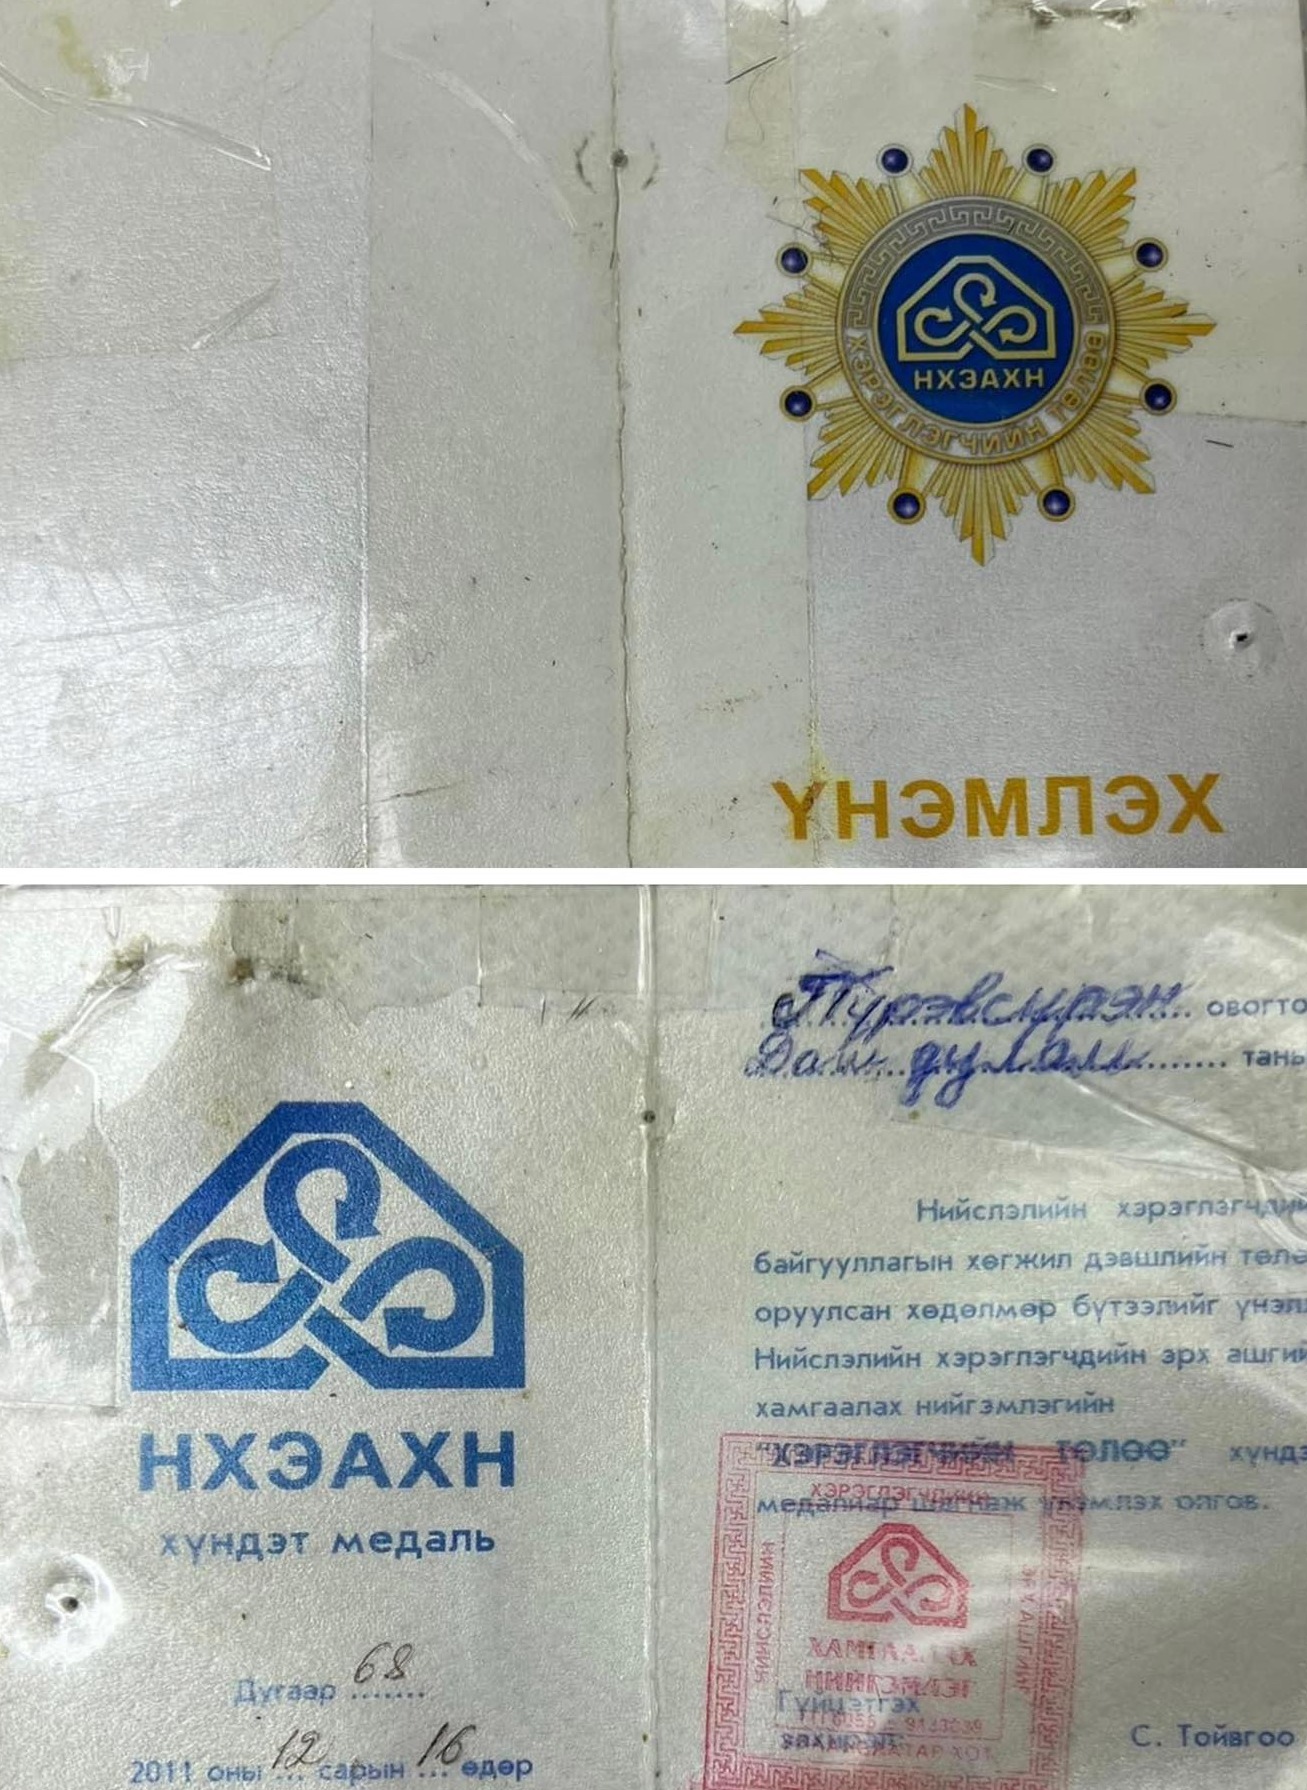 НХЭАХН
ХЭРЭГЛЭГЧИЙН ТӨЛӨӨ
ҮНЭМЛЭХ
НХЭАХН
хүндэт медаль
Дугаар 68
2011 оны 12 сарын 16 өдөр
Пүрэвсүрэн овогто
таны
Нийслэлийн хэрэглэгчдийн
байгууллагын хөгжил дэвшлийн төлө
оруулсан хөдөлмөр бүтээлийг үнэл
Нийслэлийн хэрэглэгчдийн эрх ашгий
хамгаалах нийгэмлэгийн
"ХЭРЭГЛЭГЧИЙН ТӨЛӨӨ" хүндэ
медалиар шагнаж үнэмлэх олгов.
ХЭРЭГЛЭГЧДИЙН
НИЙСЛЭЛИЙН
ЭРХ АШГИЙГ
ХАМГААЛАХ
НИЙГЭМЛЭГ
Гүйцэтгэх
захирал
УЛААНБААТАР ХОТ
С. Тойвгоо